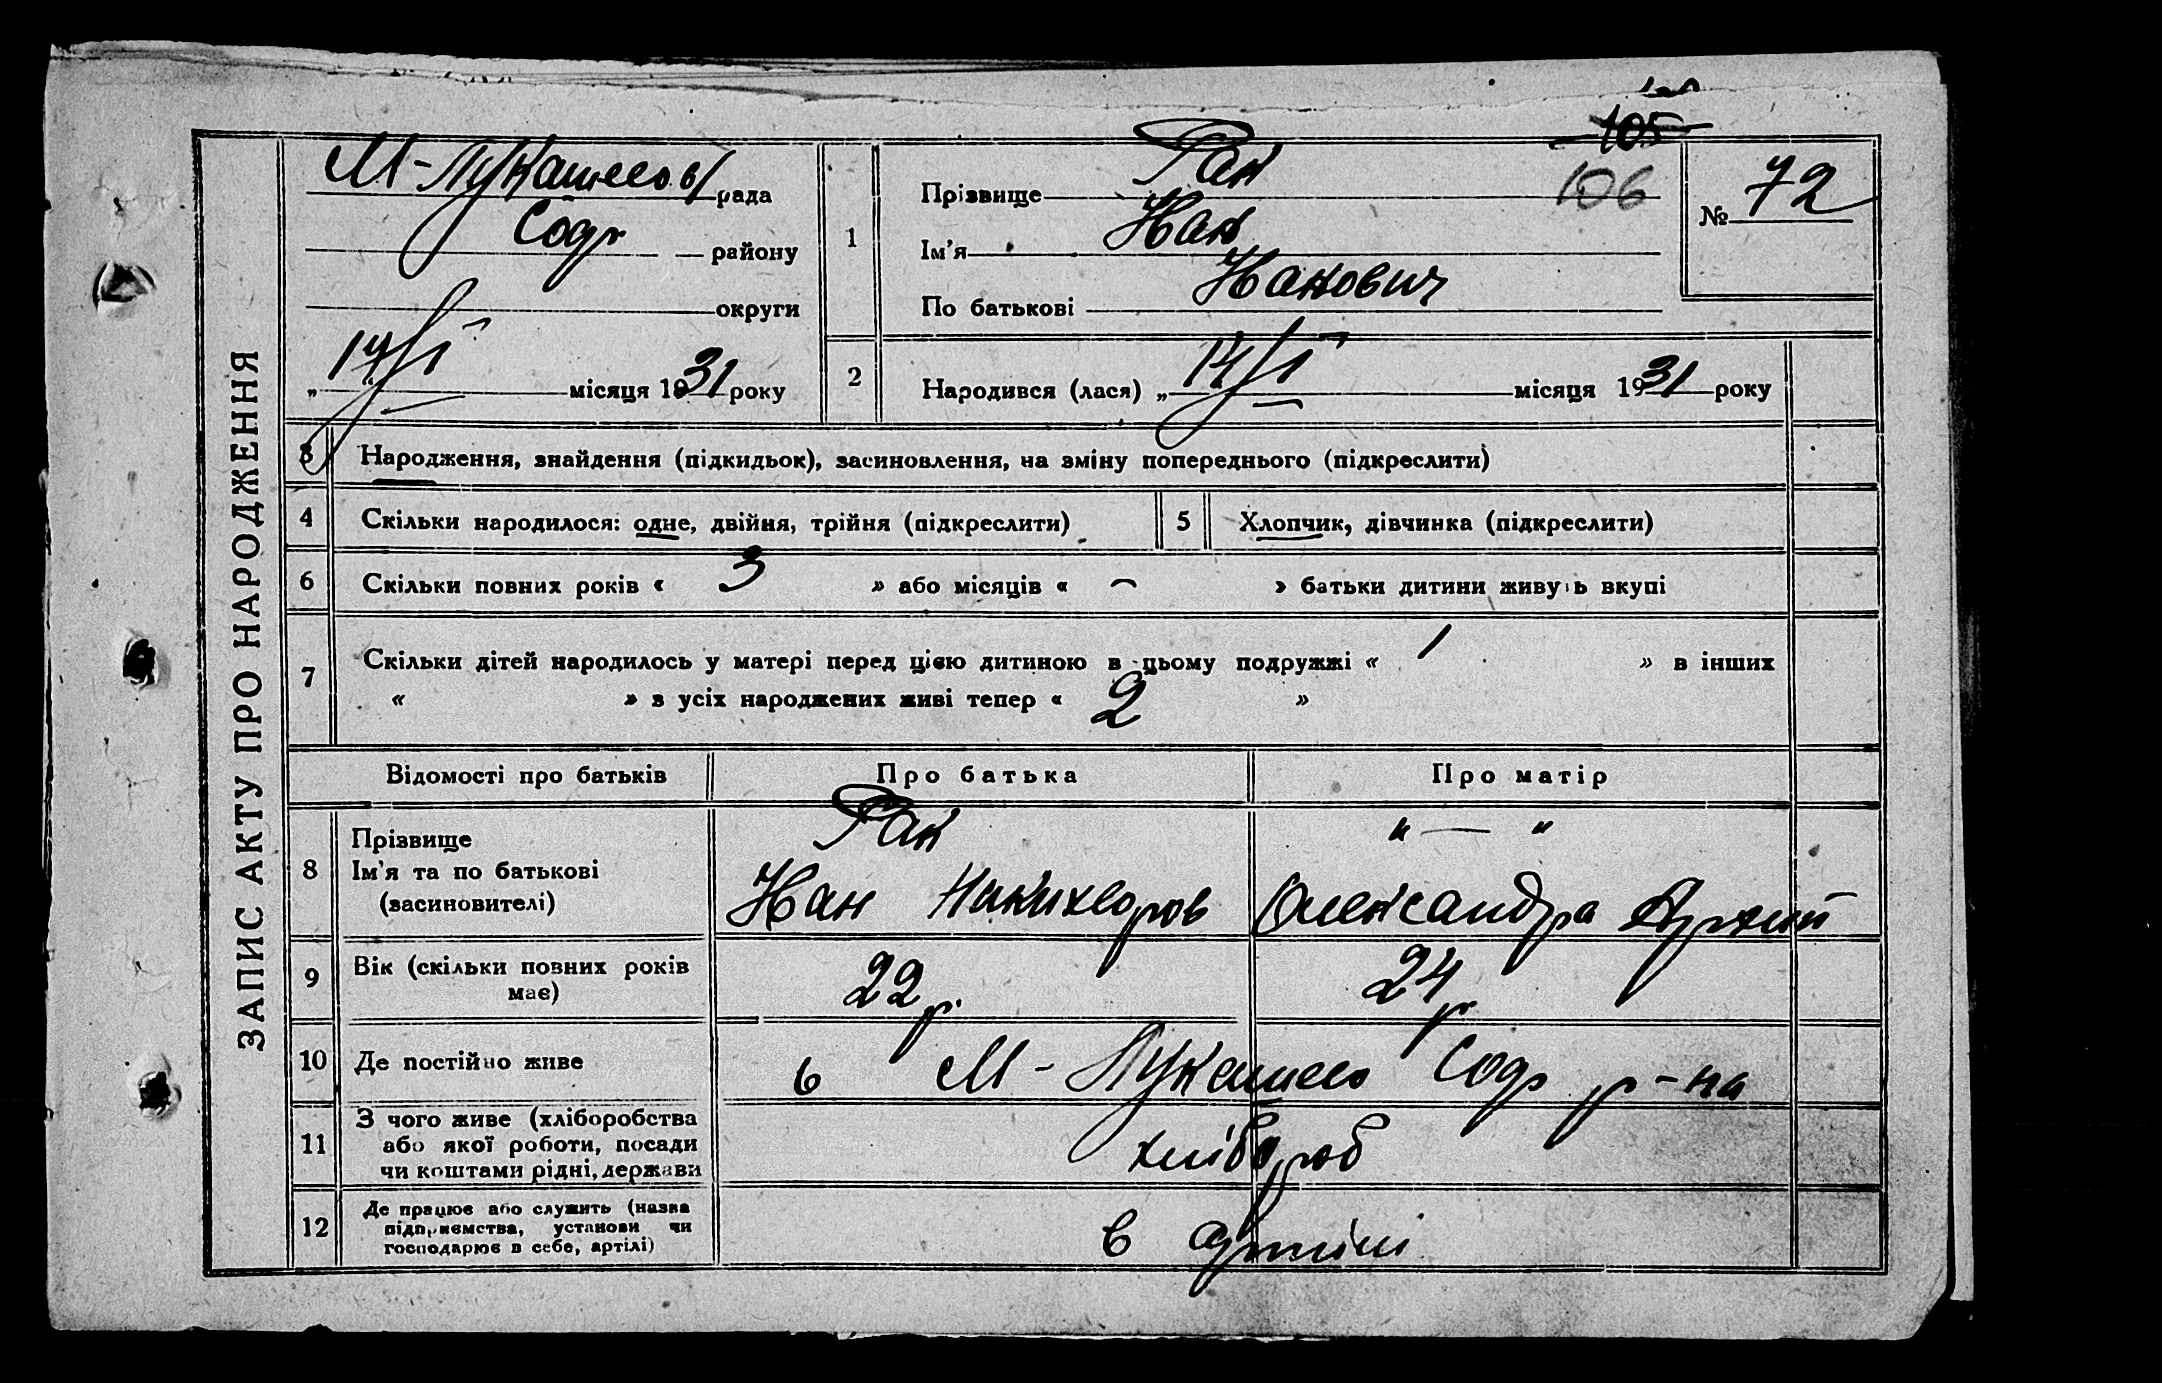 105
106
№ 72
ЗАПИС АКТУ ПРО НАРОДЖЕННЯ
М-Лукашево рада
Содр району
округи
„ 14/I місяця 1931 року
1
Прізвище Рак
Ім'я Иан
По батькові Ианович
2
Народився (лася) „ 14/I місяця 1931 року
3 Народження, знайдення (підкидьок), засиновлення, на зміну попереднього (підкреслити)
4 Скільки народилося: одне, двійня, трійня (підкреслити)
5 Хлопчик, дівчинка (підкреслити)
6 Скільки повних років « 3 » або місяців « – » батьки дитини живуть вкупі
7 Скільки дітей народилось у матері перед цією дитиною в цьому подружжі « 1 » в інших
« » з усіх народжених живі тепер « 2 »
Відомості про батьків Про батька Про матір
8 Прізвище Рак " — "
Ім'я та по батькові Иан Никихворов Олександра
(засиновителі)
9 Вік (скільки повних років 22 р. 24 р
має)
10 Де постійно живе в М-Лукашево Содр р-на
11 З чого живе (хліборобства
або якої роботи, посади хлібороб
чи коштами рідні, держави
12 Де працює або служить (назва
підприємства, установи чи в артілі
господарює в себе, артілі)